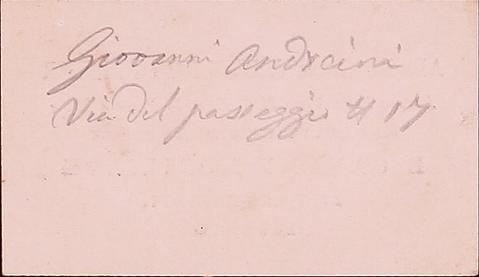 Giovanni Andreini
Via del passeggio # 17